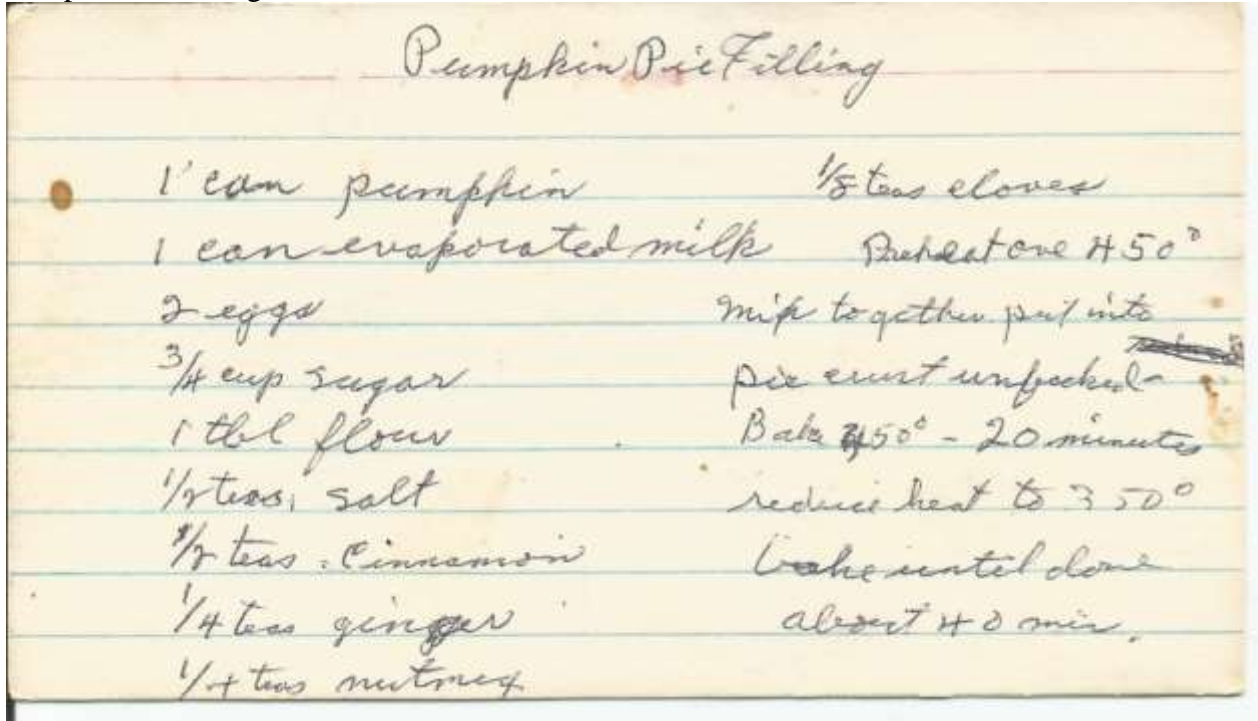 Pumpkin Pie Filling
1 can pumpkin
1 can evaporated milk
2 eggs
3/4 cup sugar
1 tbl flour
1/2 teas. salt
1/2 teas. Cinnamon
1/4 teas ginger
1/4 teas nutmeg
1/8 teas cloves
Preheat ove 450°
Mix together put into
pie crust unbaked-
Bake 450° - 20 minutes
reduce heat to 350°
bake until done
about 40 min.